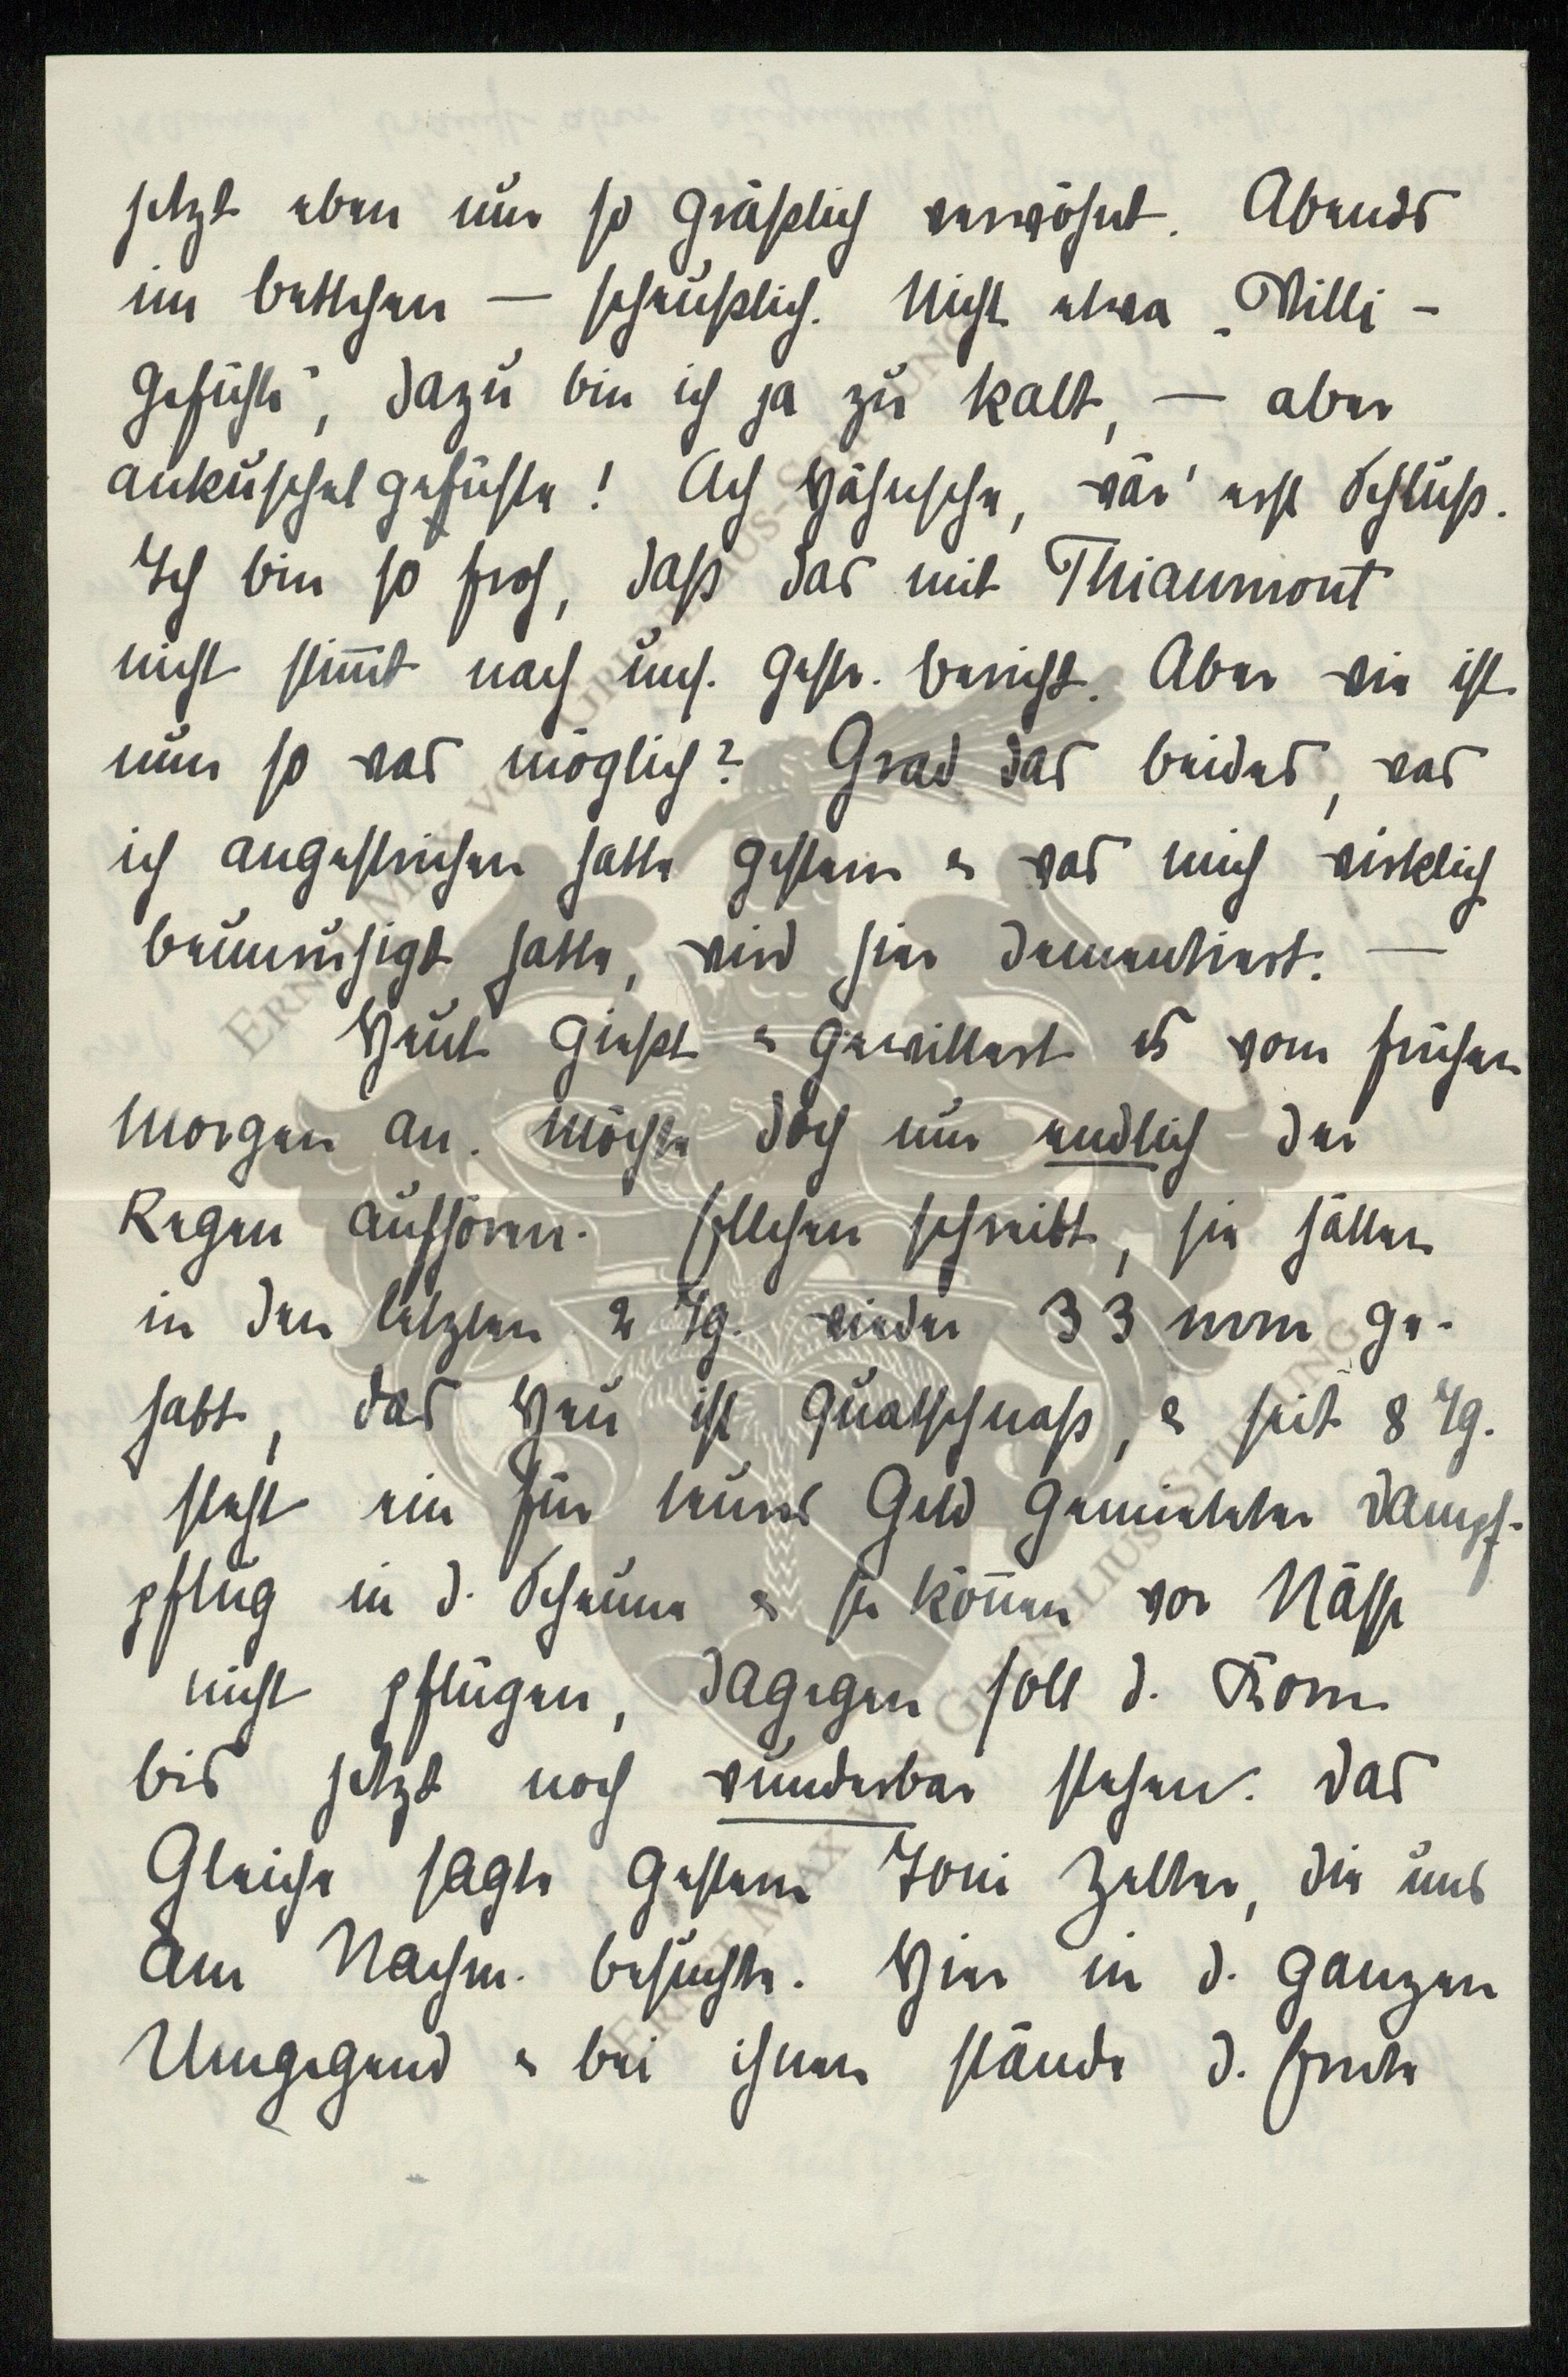 jetzt eben nur so gräßlich verwöhnt. Abends
im Bettchen — scheußlich. Nicht etwa „Willi-
gefühle", dazu bin ich ja zu kalt, — aber
Ankuschelgefühle! Ach Hähnsche, wär' erst Schluß.
Ich bin so froh, daß das mit Thiaumont
nicht stim̅t nach uns. gestr. Bericht. Aber wie ist
nur so was möglich? Grad das beides, was
ich angestrichen hatte gestern & was mich wirklich
beunruhigt hatte, wird hier dementiert. —
Heut gießt & gewittert es vom frühen
Morgen an. Möchte doch nur endlich der
Regen aufhören. Ellchen schreibt, sie hätten
in den letzten 2 Tg. wieder 33 mm ge-
habt, das Heu ist quatschnaß, & seit 8 Tg.
steht ein für teures Geld gemieteter Dampf-
pflug in d. Scheune & sie kön̅en vor Nässe
nicht pflügen, dagegen soll d. Korn
bis jetzt noch wunderbar stehen. Das
Gleiche sagte gestern Toni Zelter, die uns
am Nachm. besuchte. Hier in d. ganzen
Umgegend & bei ihnen stände d. Ernte
ERNST MAX VON GRUNELIUS-STIFTUNG
ERNST MAX VON GRUNELIUS-STIFTUNG